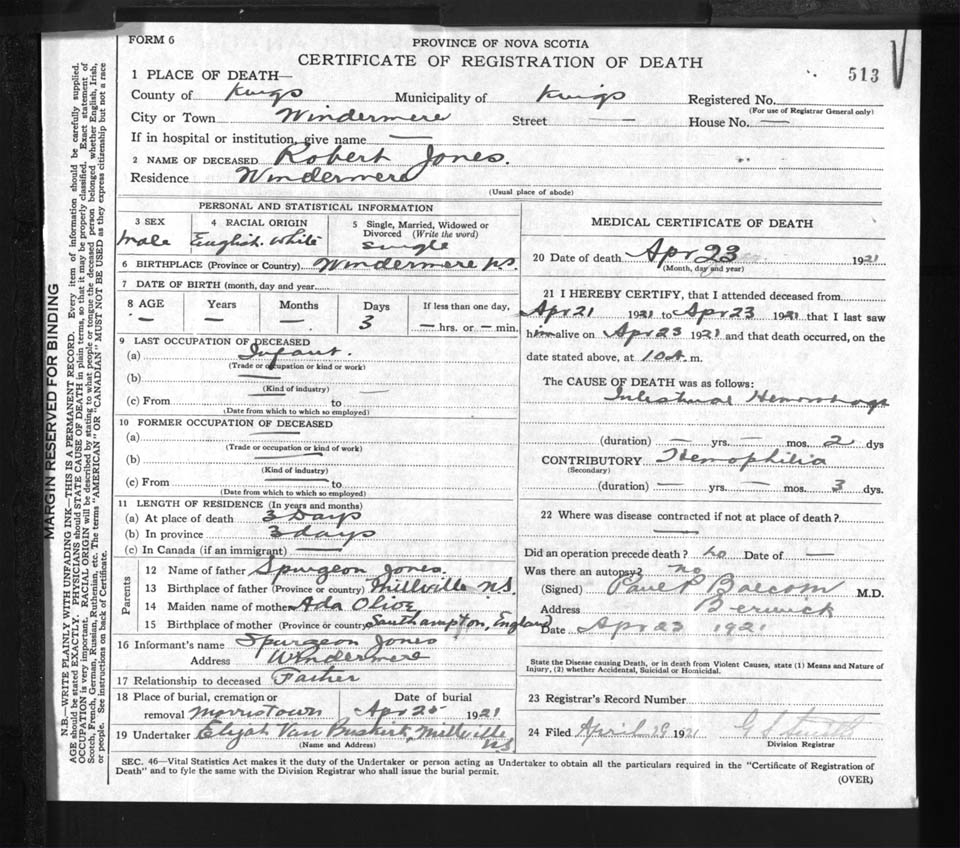 FORM 6
PROVINCE OF NOVA SCOTIA
CERTIFICATE OF REGISTRATION OF DEATH
513
1 PLACE OF DEATH—
County of Kings Municipality of Kings Registered No.
(For use of Registrar General only)
City or Town Windermere Street — House No. —
If in hospital or institution, give name —
2 NAME OF DECEASED Robert Jones.
Residence Windermere
(Usual place of abode)
PERSONAL AND STATISTICAL INFORMATION
3 SEX
male
4 RACIAL ORIGIN
English. White
5 Single, Married, Widowed or
Divorced (Write the word)
single
6 BIRTHPLACE (Province or Country) Windermere N.S.
7 DATE OF BIRTH (month, day and year)
8 AGE Years Months Days If less than one day,
— — — 3 — hrs. or — min.
9 LAST OCCUPATION OF DECEASED
(a) Infant.
(Trade or occupation or kind of work)
(b) —
(Kind of industry)
(c) From to —
(Date from which to which so employed)
10 FORMER OCCUPATION OF DECEASED
(a) —
(Trade or occupation or kind of work)
(b) —
(Kind of industry)
(c) From — to
(Date from which to which so employed)
11 LENGTH OF RESIDENCE (In years and months)
(a) At place of death 3 Days
(b) In province 3 days
(c) In Canada (if an immigrant) —
Parents
12 Name of father Spurgeon Jones.
13 Birthplace of father (Province or country) Millville N.S.
14 Maiden name of mother Ada Olive
15 Birthplace of mother (Province or country) Southampton, England
16 Informant's name Spurgeon Jones
Address Windermere
17 Relationship to deceased Father
18 Place of burial, cremation or Date of burial
removal Morristown Apr 25 1921
19 Undertaker Elijah Van Buskirk, Millville
N.S.
(Name and Address)
MEDICAL CERTIFICATE OF DEATH
20 Date of death Apr 23 1921
(Month, day and year)
21 I HEREBY CERTIFY, that I attended deceased from
Apr 21 1921 to Apr 23 1921 that I last saw
him alive on Apr 23 1921 and that death occurred, on the
date stated above, at 10 A. m.
The CAUSE OF DEATH was as follows:
Intestinal Hemorrhage
(duration) — yrs. — mos. 2 dys
CONTRIBUTORY Hemophilia
(Secondary)
(duration) — yrs. — mos. 3 dys.
22 Where was disease contracted if not at place of death?
—
Did an operation precede death? no Date of —
Was there an autopsy? no
(Signed) Paul P Balcom M.D.
Address Berwick
Date Apr 23 1921
State the Disease causing Death, or in death from Violent Causes, state (1) Means and Nature of
Injury, (2) whether Accidental, Suicidal or Homicidal.
23 Registrar's Record Number
24 Filed April 29 1921
Division Registrar
SEC. 46—Vital Statistics Act makes it the duty of the Undertaker or person acting as Undertaker to obtain all the particulars required in the "Certificate of Registration of
Death" and to fyle the same with the Division Registrar who shall issue the burial permit.
(OVER)
MARGIN RESERVED FOR BINDING
N.B.—WRITE PLAINLY WITH UNFADING INK—THIS IS A PERMANENT RECORD. Every item of information should be carefully supplied.
AGE should be stated EXACTLY. PHYSICIANS should STATE CAUSE OF DEATH in plain terms, so that it may be properly classified. Exact statement of
OCCUPATION is very important. RACIAL ORIGIN will be described by stating to what people or tongue the deceased person belonged whether English, Irish,
Scotch, French, German, Russian, Ruthenian, etc. The terms "AMERICAN" OR "CANADIAN" MUST NOT BE USED as they express citizenship but not a race
or people. See instructions on back of Certificate.